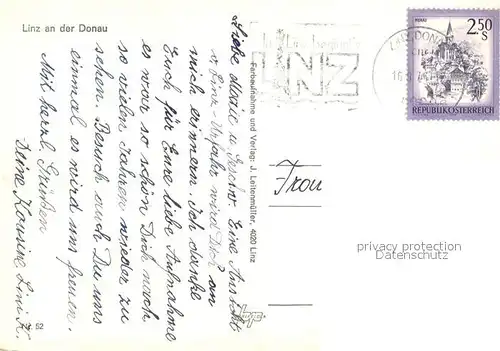 Linz an der Donau
Liebe Marie u. Geschw. Eine Ansicht
v. Linz - Urfahr wird Dich an
mich erinnern. Ich danke
Euch für Eure liebe Aufnahme
es war so schön Dich nach
so vielen Jahren wieder zu
sehen. Besuch auch Du uns
einmal es wird uns freuen.
Mit herzl. Grüßen
Deine Kousine Lini K.
52
Farbaufnahme und Verlag: J. Leitenmüller, 4020 Linz
LINZ
2.50
S
REPUBLIK ÖSTERREICH
Frau
privacy protection
DATENSCHUTZ